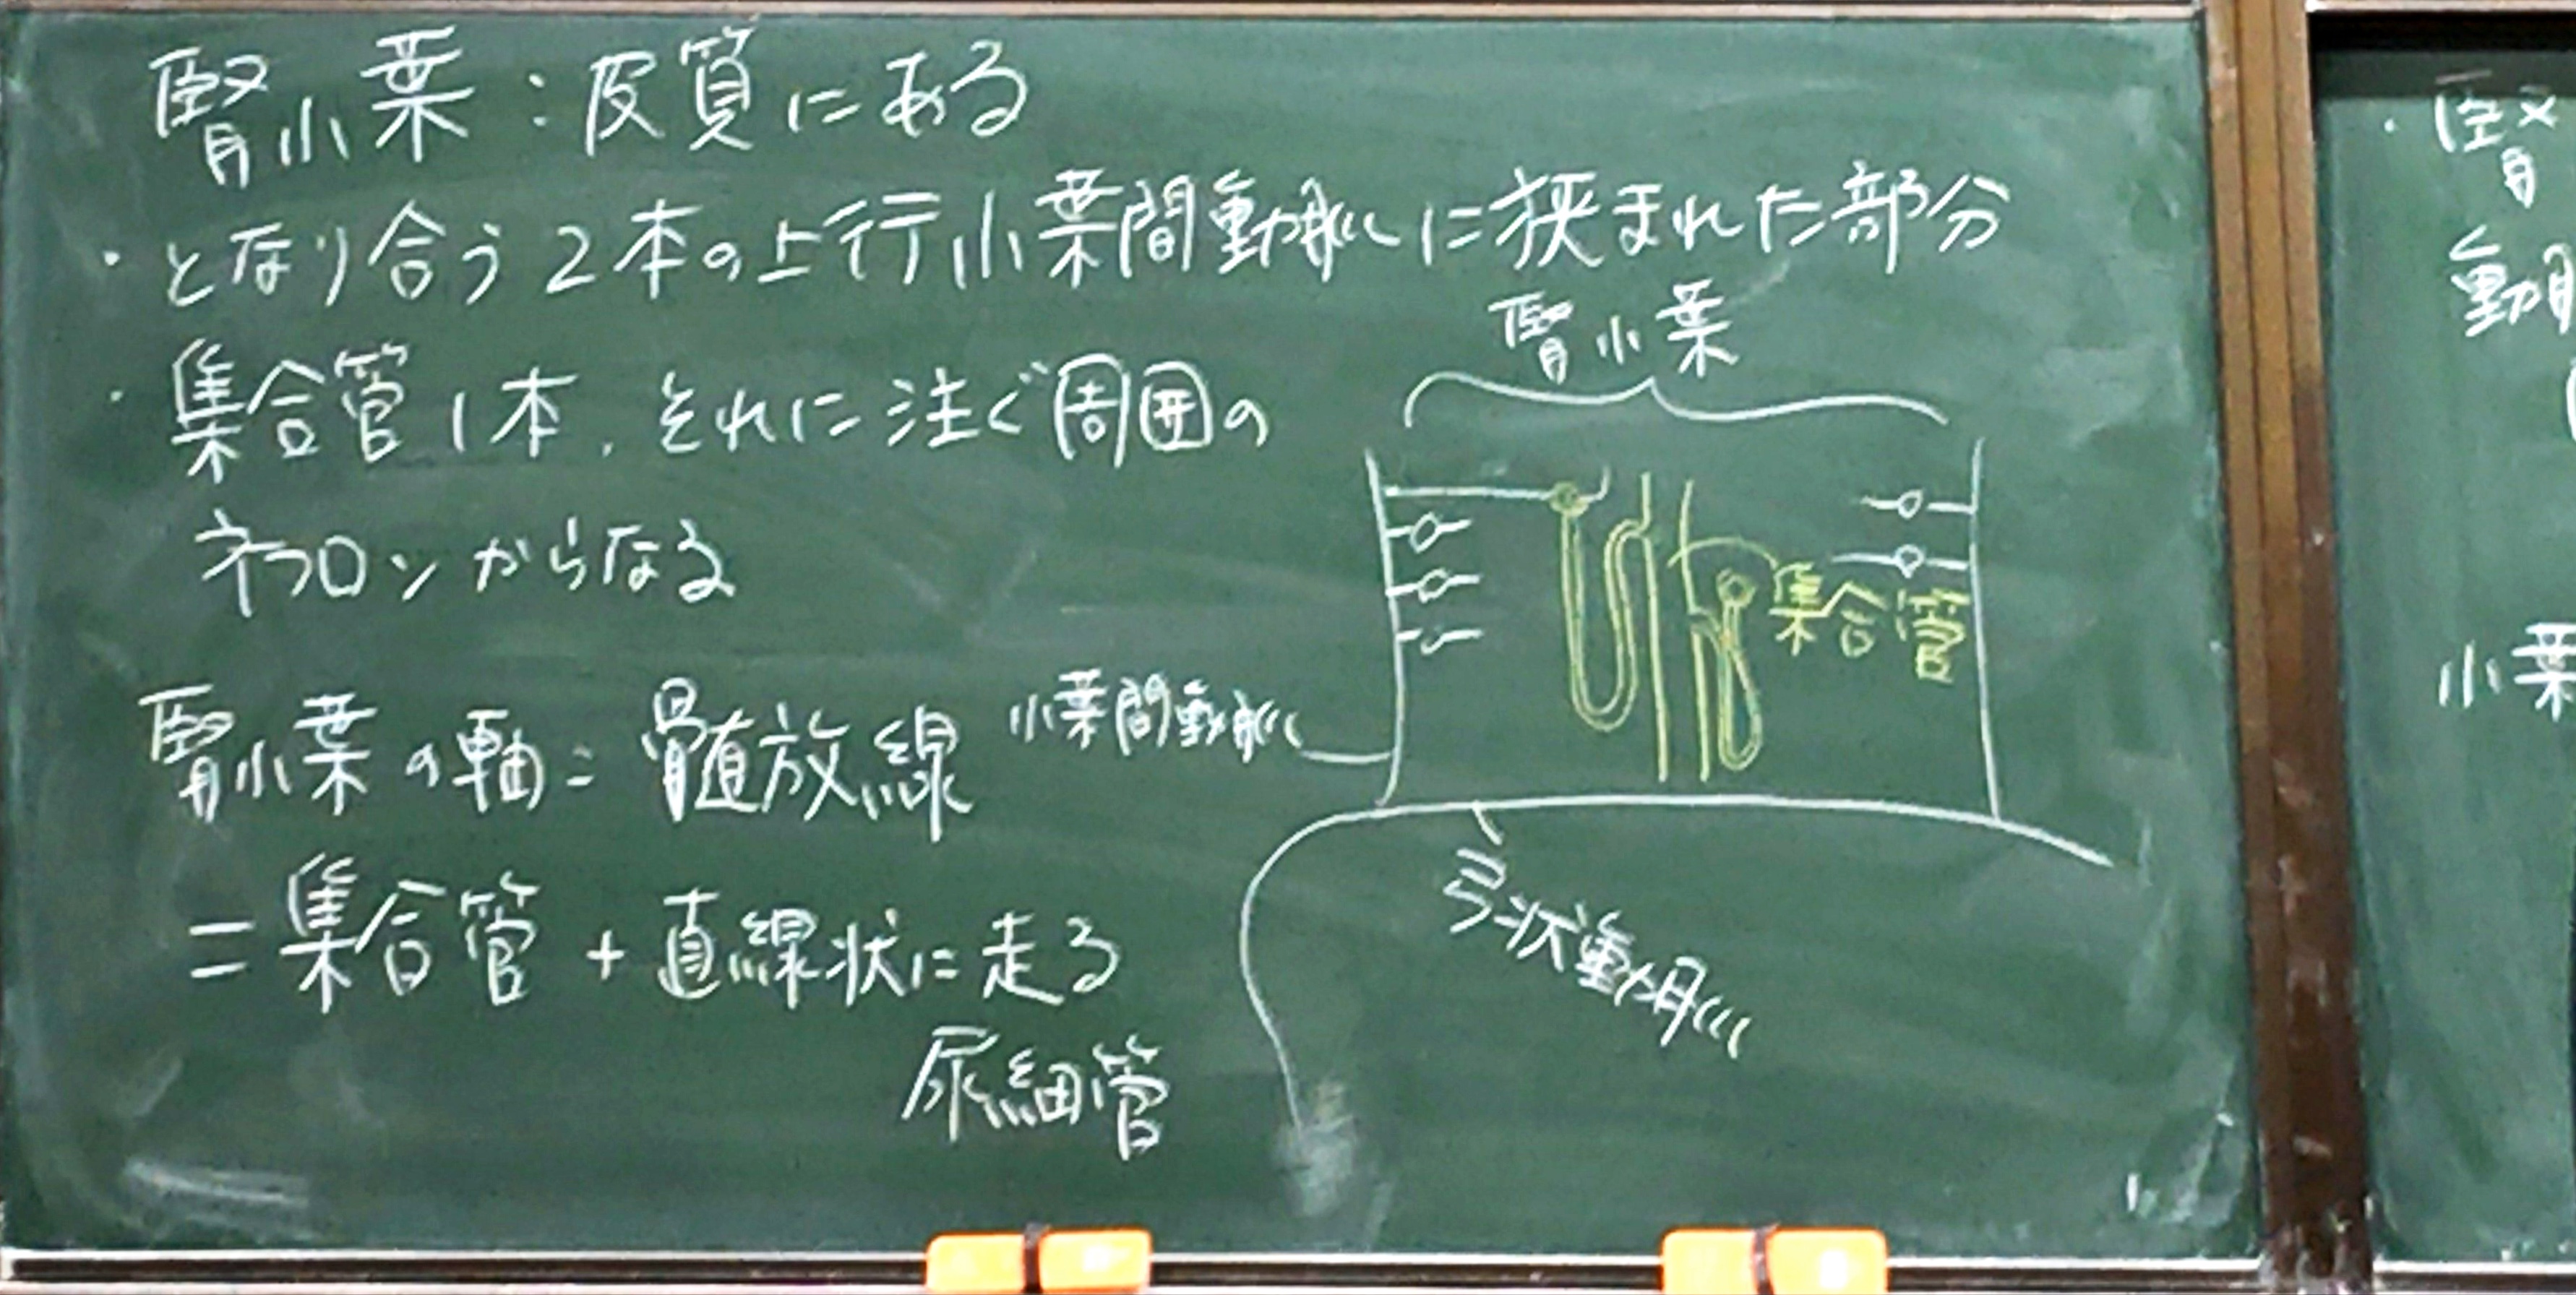 腎小葉：皮質にある
・となり合う2本の上行小葉間動脈に挟まれた部分
・集合管1本，それに注ぐ周囲の
ネフロンからなる
腎小葉の軸＝髄放線
＝集合管＋直線状に走る
尿細管
腎小葉
集合管
小葉間動脈
弓状動脈
・腎
動脈
小葉